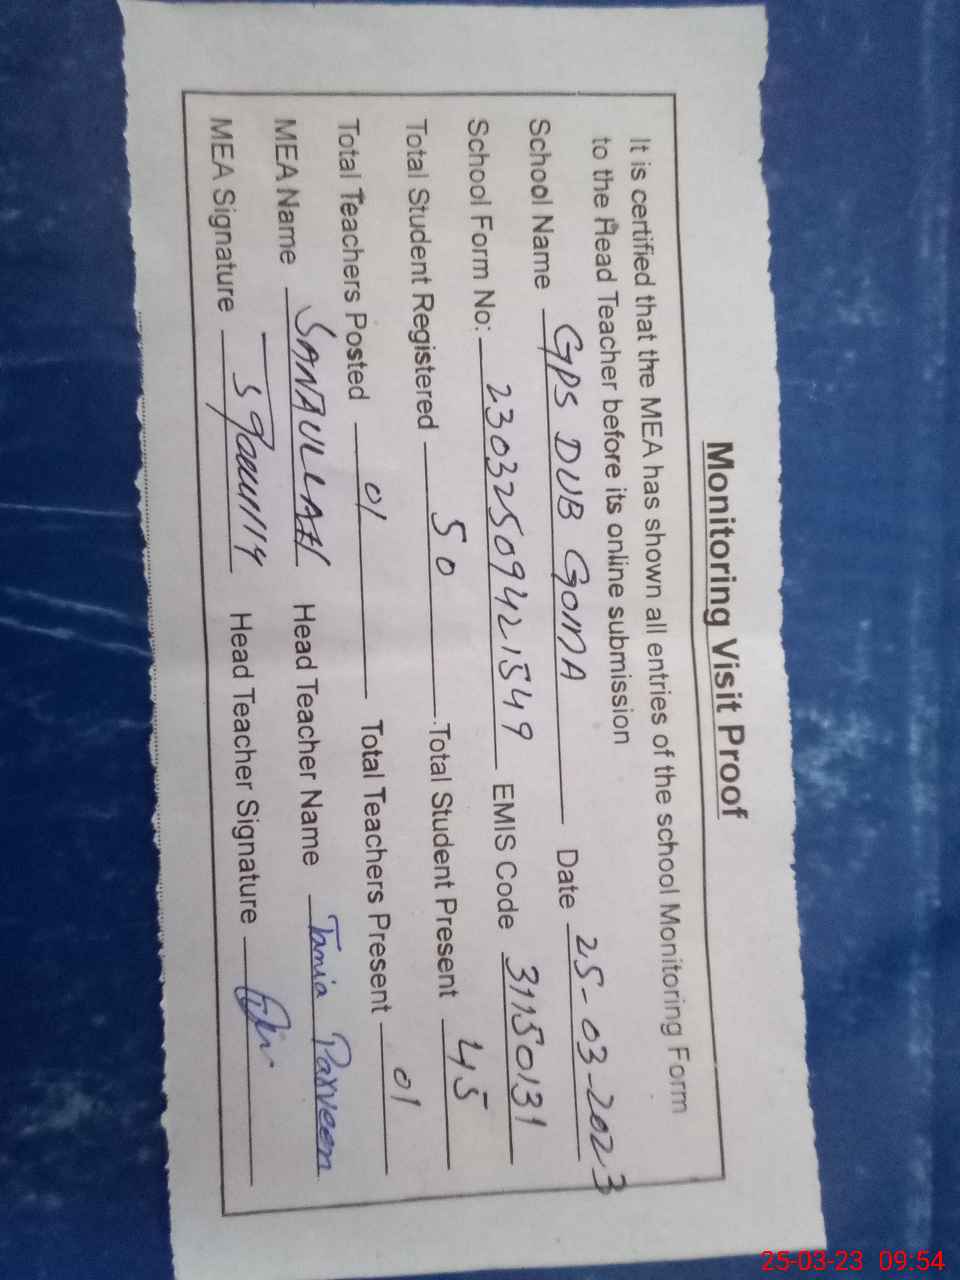 Monitoring Visit Proof
It is certified that the MEA has shown all entries of the school Monitoring Form
to the Head Teacher before its online submission
School Name GPS DUB GOMA Date 25-03-2023
School Form No: 23032509421549 EMIS Code 31150131
Total Student Registered 50 Total Student Present 45
Total Teachers Posted 01 Total Teachers Present 01
MEA Name SANAULLAH Head Teacher Name Tania Parveen
MEA Signature Head Teacher Signature
25-03-23 09:54